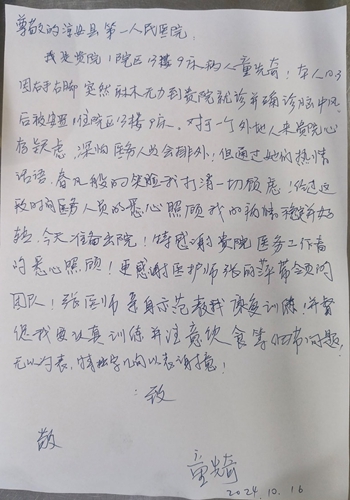 尊敬的淳安县第一人民医院:
我是贵院1院区13楼9床病人童先奇!本人10.3
因右手右脚突然麻木无力到贵院就诊并确诊脑中风,
后被安置1住院区13楼9床。对于一个外地人来贵院心
存疑虑,深怕医务人员会排外!但通过她们热情
话语、春风般的笑脸我打消一切顾虑!经过这
段时间医务人员的悉心照顾我的病情稳并好
转,今天准备出院!特感谢贵院医务工作者
的悉心照顾!更感谢医护师张的萍带领的
团队!张医师亲身示范教我康复训练!并督
促我要认真训练并注意饮食等细节问题,
无以为表,特书字几句以表谢意!
致
敬
童先奇
2024.10.16